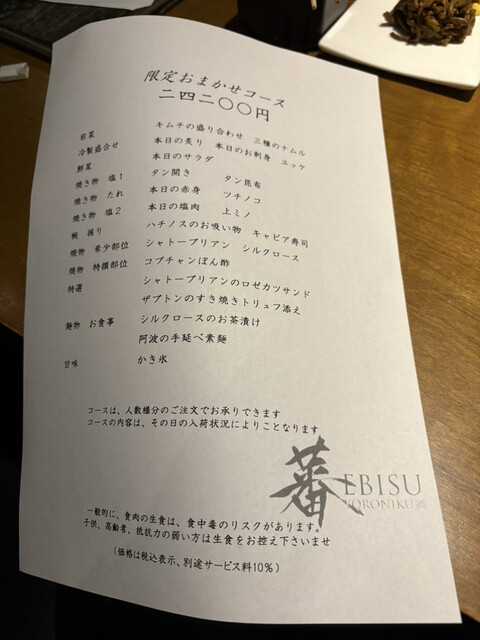 限定おまかせコース
二四二〇〇円
前菜 キムチの盛り合わせ 三種のナムル
冷製盛合せ 本日の炙り 本日のお刺身 ユッケ
鮮菜 本日のサラダ
焼き物 塩1 タン開き タン昆布
焼き物 たれ 本日の赤身 ツチノコ
焼き物 塩2 本日の塩肉 上ミノ
椀 握り ハチノスのお吸い物 キャビア寿司
焼物 希少部位 シャトーブリアン シルクロース
焼物 特撰部位 コプチャンぽん酢
特選 シャトーブリアンのロゼカツサンド
ザブトンのすき焼きトリュフ添え
麺物 お食事 シルクロースのお茶漬け
阿波の手延べ素麺
甘味 かき氷
コースは、人数様分のご注文でお承りできます
コースの内容は、その日の入荷状況によりことなります
蕃 EBISU
YORONIKU
一般的に、食肉の生食は、食中毒のリスクがあります。
子供、高齢者、抵抗力の弱い方は生食をお控え下さいませ
(価格は税込表示、別途サービス料10%)